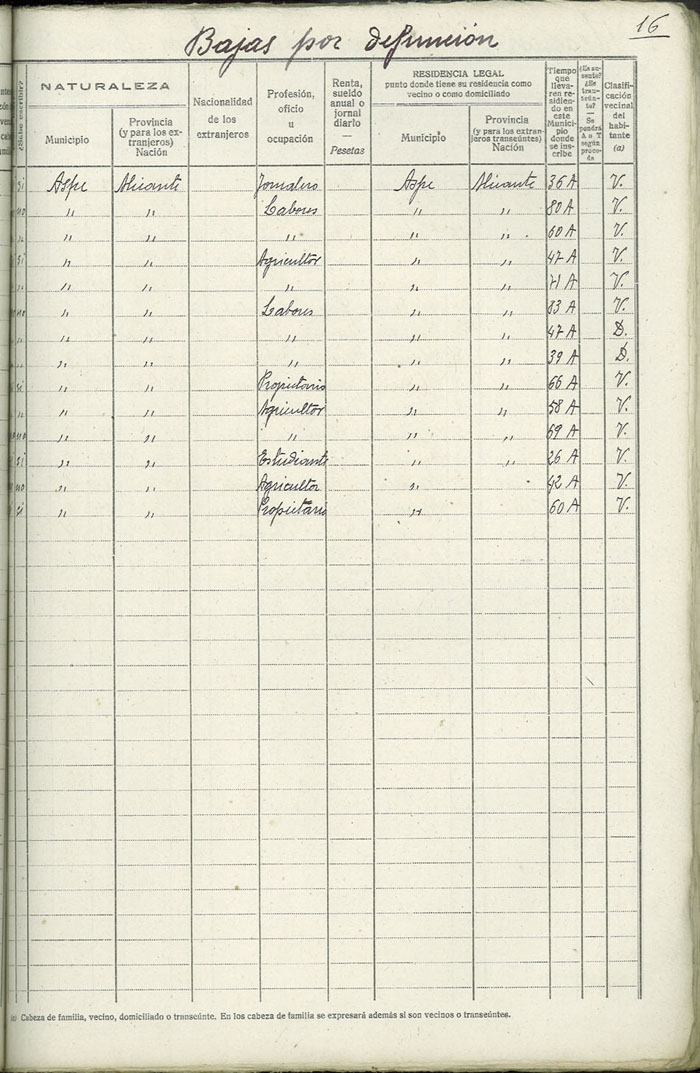 16
Bajas por defunción
¿Sabe escribir?
NATURALEZA
Municipio
Provincia (y para los extranjeros) Nación
Nacionalidad de los extranjeros
Profesión, oficio u ocupación
Renta, sueldo anual o jornal diario — Pesetas
RESIDENCIA LEGAL
punto donde tiene su residencia como vecino o como domiciliado
Municipio
Provincia (y para los extranjeros transeúntes) Nación
Tiempo que llevaren residiendo en este Municipio donde se inscribe
¿Es ausente? ¿Es transeúnte? — Se pondrá A o T según proceda
Clasificación vecinal del habitante (a)
si Aspe Alicante Jornalero Aspe Alicante 36 A V.
no " " Labores " " 80 A V.
" " " " " " 60 A V.
si " " Agricultor " " 47 A V.
" " " " " " 71 A V.
no " " Labores " " 83 A V.
" " " " " " 47 A D.
" " " " " " 39 A D.
si " " Propietario " " 66 A V.
" " " Agricultor " " 58 A V.
no " " " " " 69 A V.
si " " Estudiante " " 26 A V.
no " " Agricultor " 42 A V.
si " " Propietario " 60 A V.
(a) Cabeza de familia, vecino, domiciliado o transeúnte. En los cabeza de familia se expresará además si son vecinos o transeúntes.